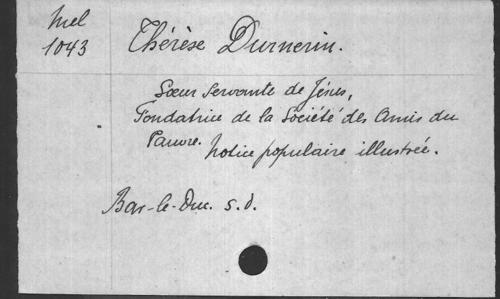 Mel
1043
Thérèse Durnerin.
Sœur servante de Jésus,
Fondatrice de la Société des Amis du
Pauvre. Notice populaire illustrée.
Bar-le-Duc. s.d.